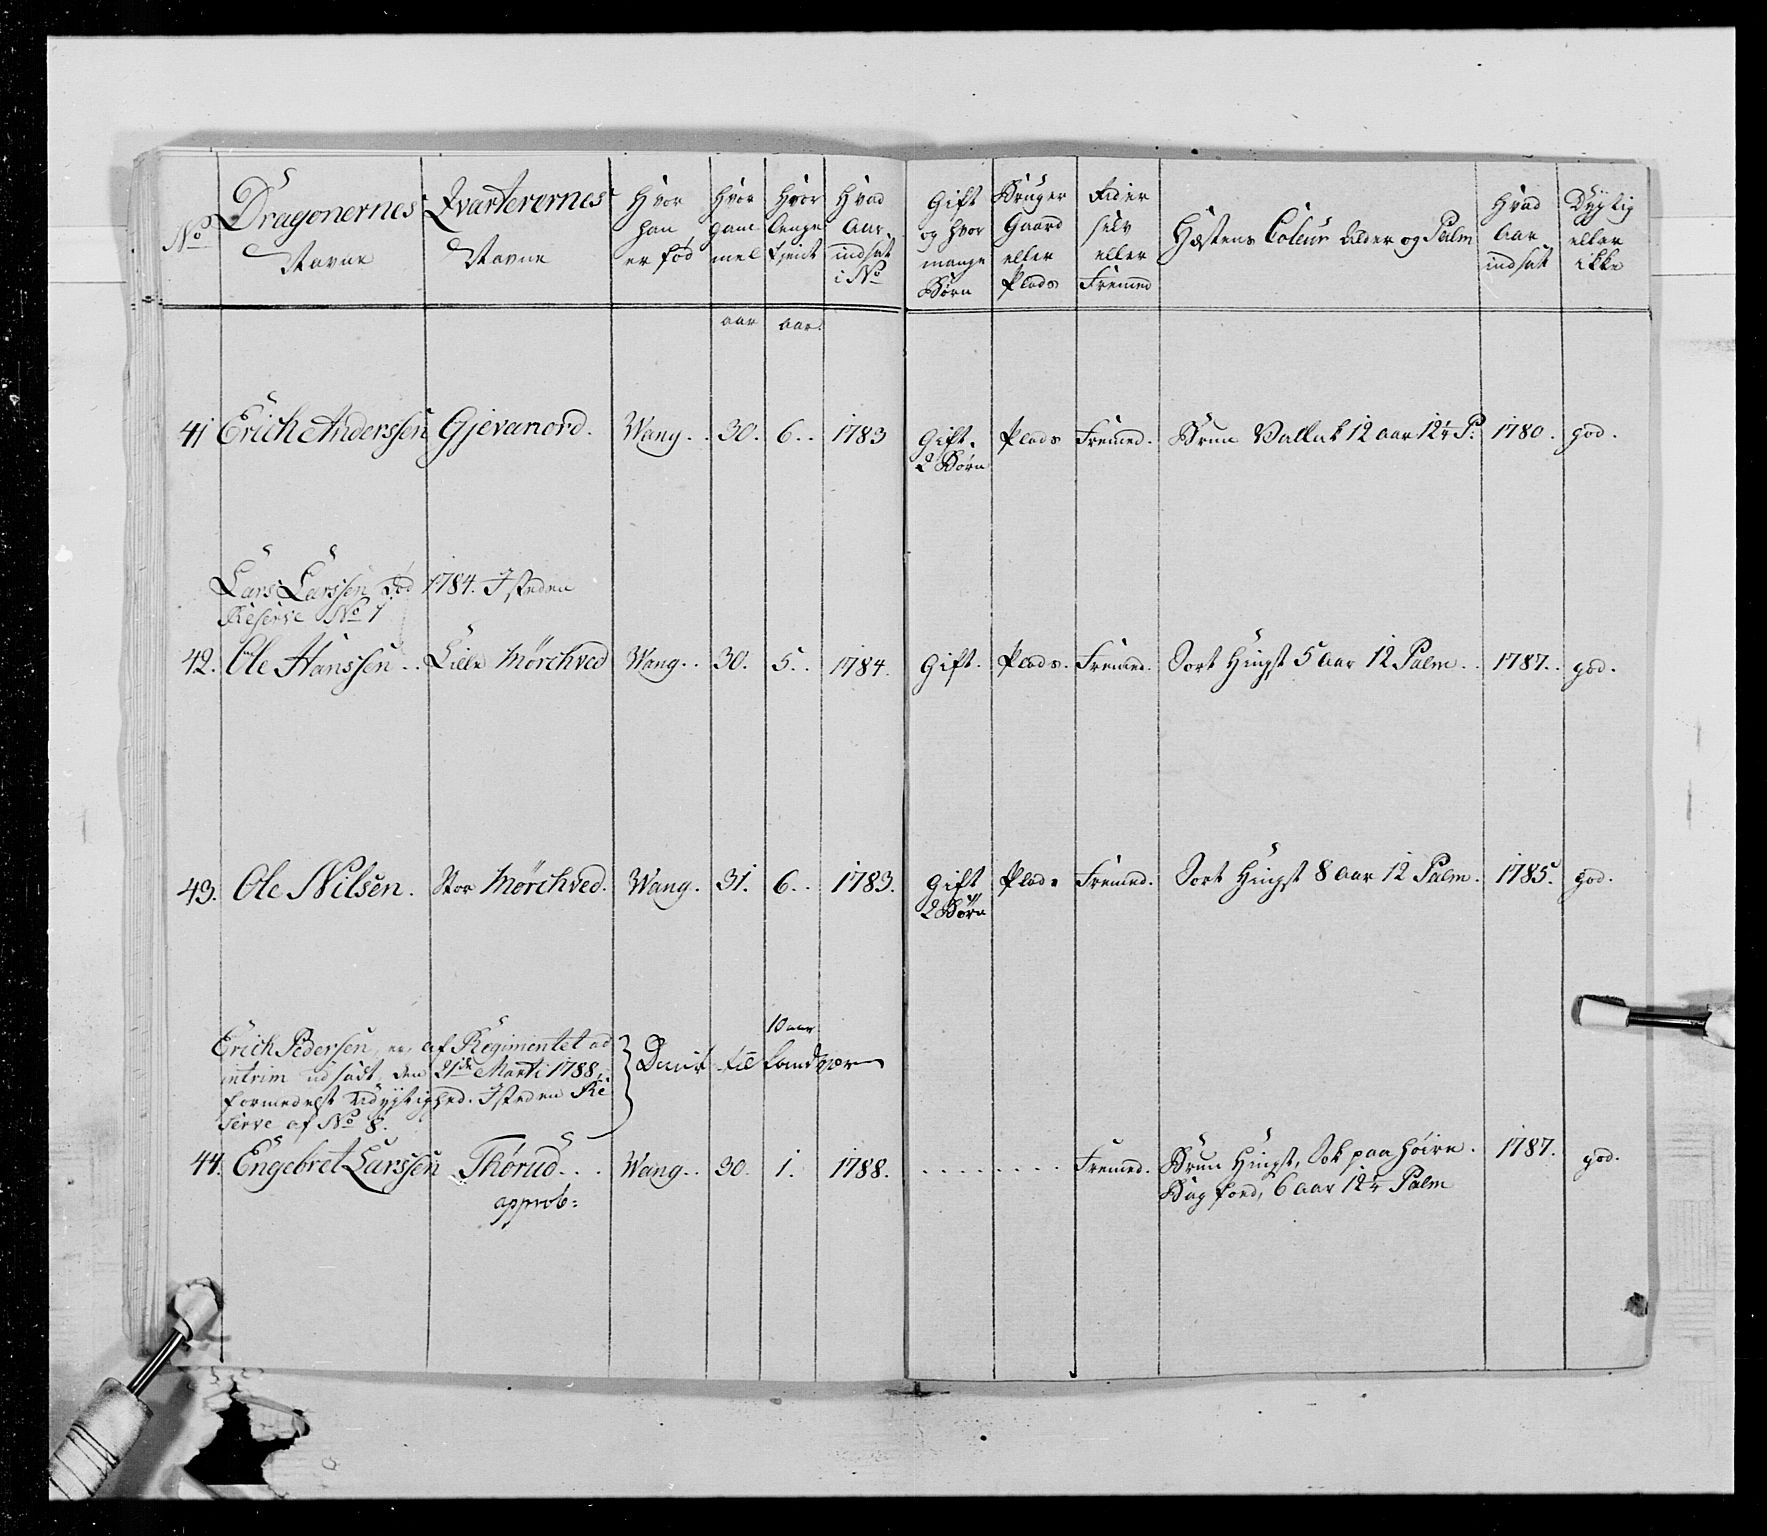 No | Dragonernes Navne | Qvarterernes Navne | Hvor han er fød | Hvor gam mel | Hvor lenge tjent | Hvad Aar indsat i No | Gift og hvor mange Børn | Bruger Gaard eller Plads | Eder selv eller Fremed | Hæstens Coleur Alder og Palm | Hvad Aar indsat | Dygtig eller ikke
aar | aar
41 | Erich Anderssen | Gjevanord. | Wang. | 30. | 6. | 1783 | Gift. 2 Børn | Plads | Fremed. | Brun Vallak 12 aar 12¼ P: | 1780. | god.
Lars Larssen død 1784. Isteden
Reserve No 7
42. | Ole Hanssen | Lille Mørchved | Wang. | 30. | 5. | 1784. | Gift. | Plads. | Fremed. | Sort Hingst 5 aar 12 Palm. | 1787. | god.
43. | Ole Nilsen. | Stor Mørchved. | Wang. | 31. | 6. | 1783. | Gift 2 Børn | Plads | Fremed. | Sort Hingst 8 aar 12 Palm. | 1785. | god.
Erich Pedersen, er af Regimentet ad
intrim udsadt, den 21de Marti 1788,
formedelst Udygtighed. Isteden Re
serve af No 8.
10 aar
til Landvær
44. | Engebret Larssen | Thorud | Wang. | 30. | 1. | 1788. | . . . . | . . . . | Fremed. | Brun Hingst, Sok paa høire Bagfod, 6 aar 12¼ Palm | 1787. | god.
approb: